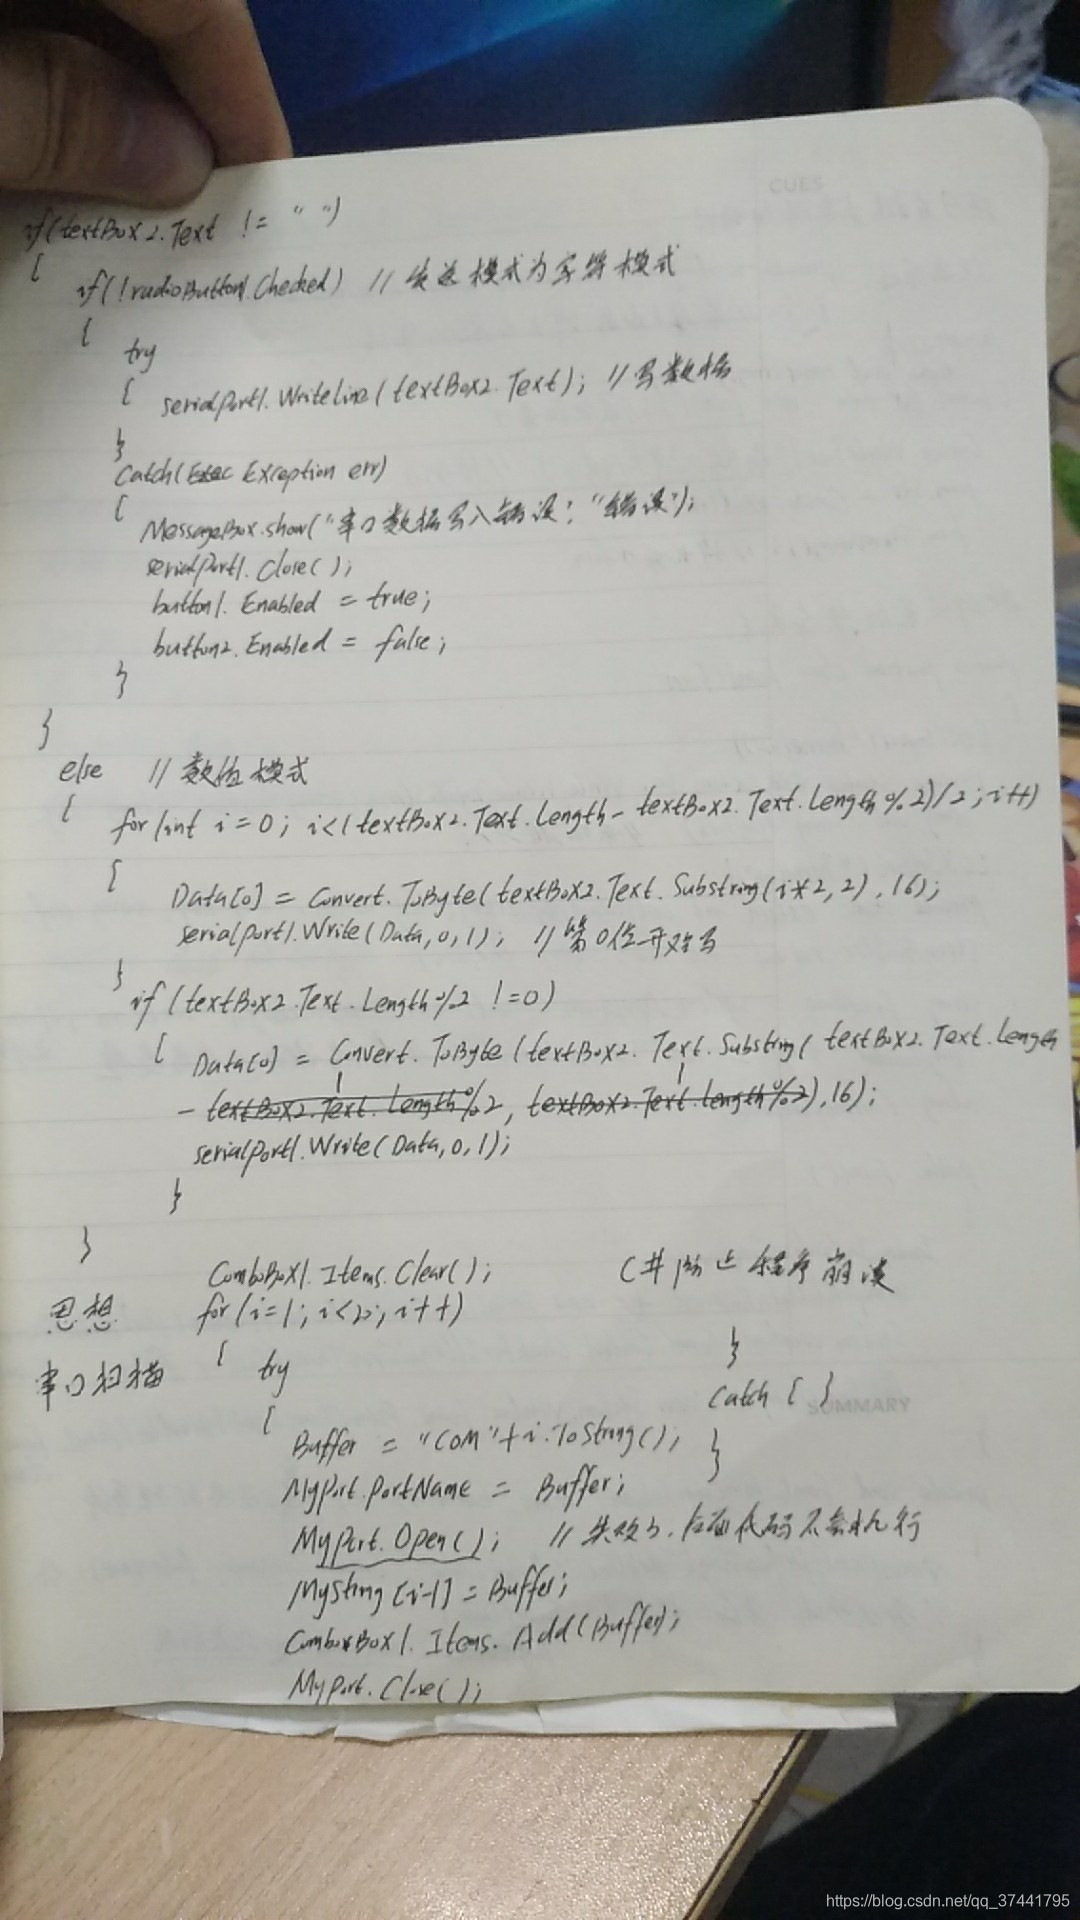 CUES
if(textBox2.Text != " ")
{
if(!radioButton1.Checked) // 发送模式为字符模式
{
try
{ serialPort1.WriteLine(textBox2.Text); //写数据
}
Catch(Exec Exception err)
{
MessageBox.show("串口数据写入错误", "错误");
serialPort1.Close();
button1.Enabled = true;
button2.Enabled = false;
}
}
else // 数值模式
{ for(int i=0; i<(textBox2.Text.Length-textBox2.Text.Length%2)/2;i++)
{
Data[0] = Convert.ToByte(textBox2.Text.Substring(i*2,2),16);
serialPort1.Write(Data,0,1); //第0位开始写
}
if(textBox2.Text.Length%2 !=0)
{ Data[0] = Convert.ToByte(textBox2.Text.Substring(textBox2.Text.Length
1 1
- textBox2.Text.Length%2, textBox2.Text.Length%2),16);
serialPort1.Write(Data,0,1);
}
}
ComboBox1.Items.Clear(); C#防止程序崩溃
思想 for(i=1;i<20;i++)
串口扫描 { try
{
Buffer = "COM"+i.ToString();
MyPort.PortName = Buffer;
MyPort.Open(); // 失败了,后面代码不会执行
MyString[i-1]=Buffer;
ComboxBox1.Items.Add(Buffer);
MyPort.Close();
}
Catch { }
}
SUMMARY
https://blog.csdn.net/qq_37441795